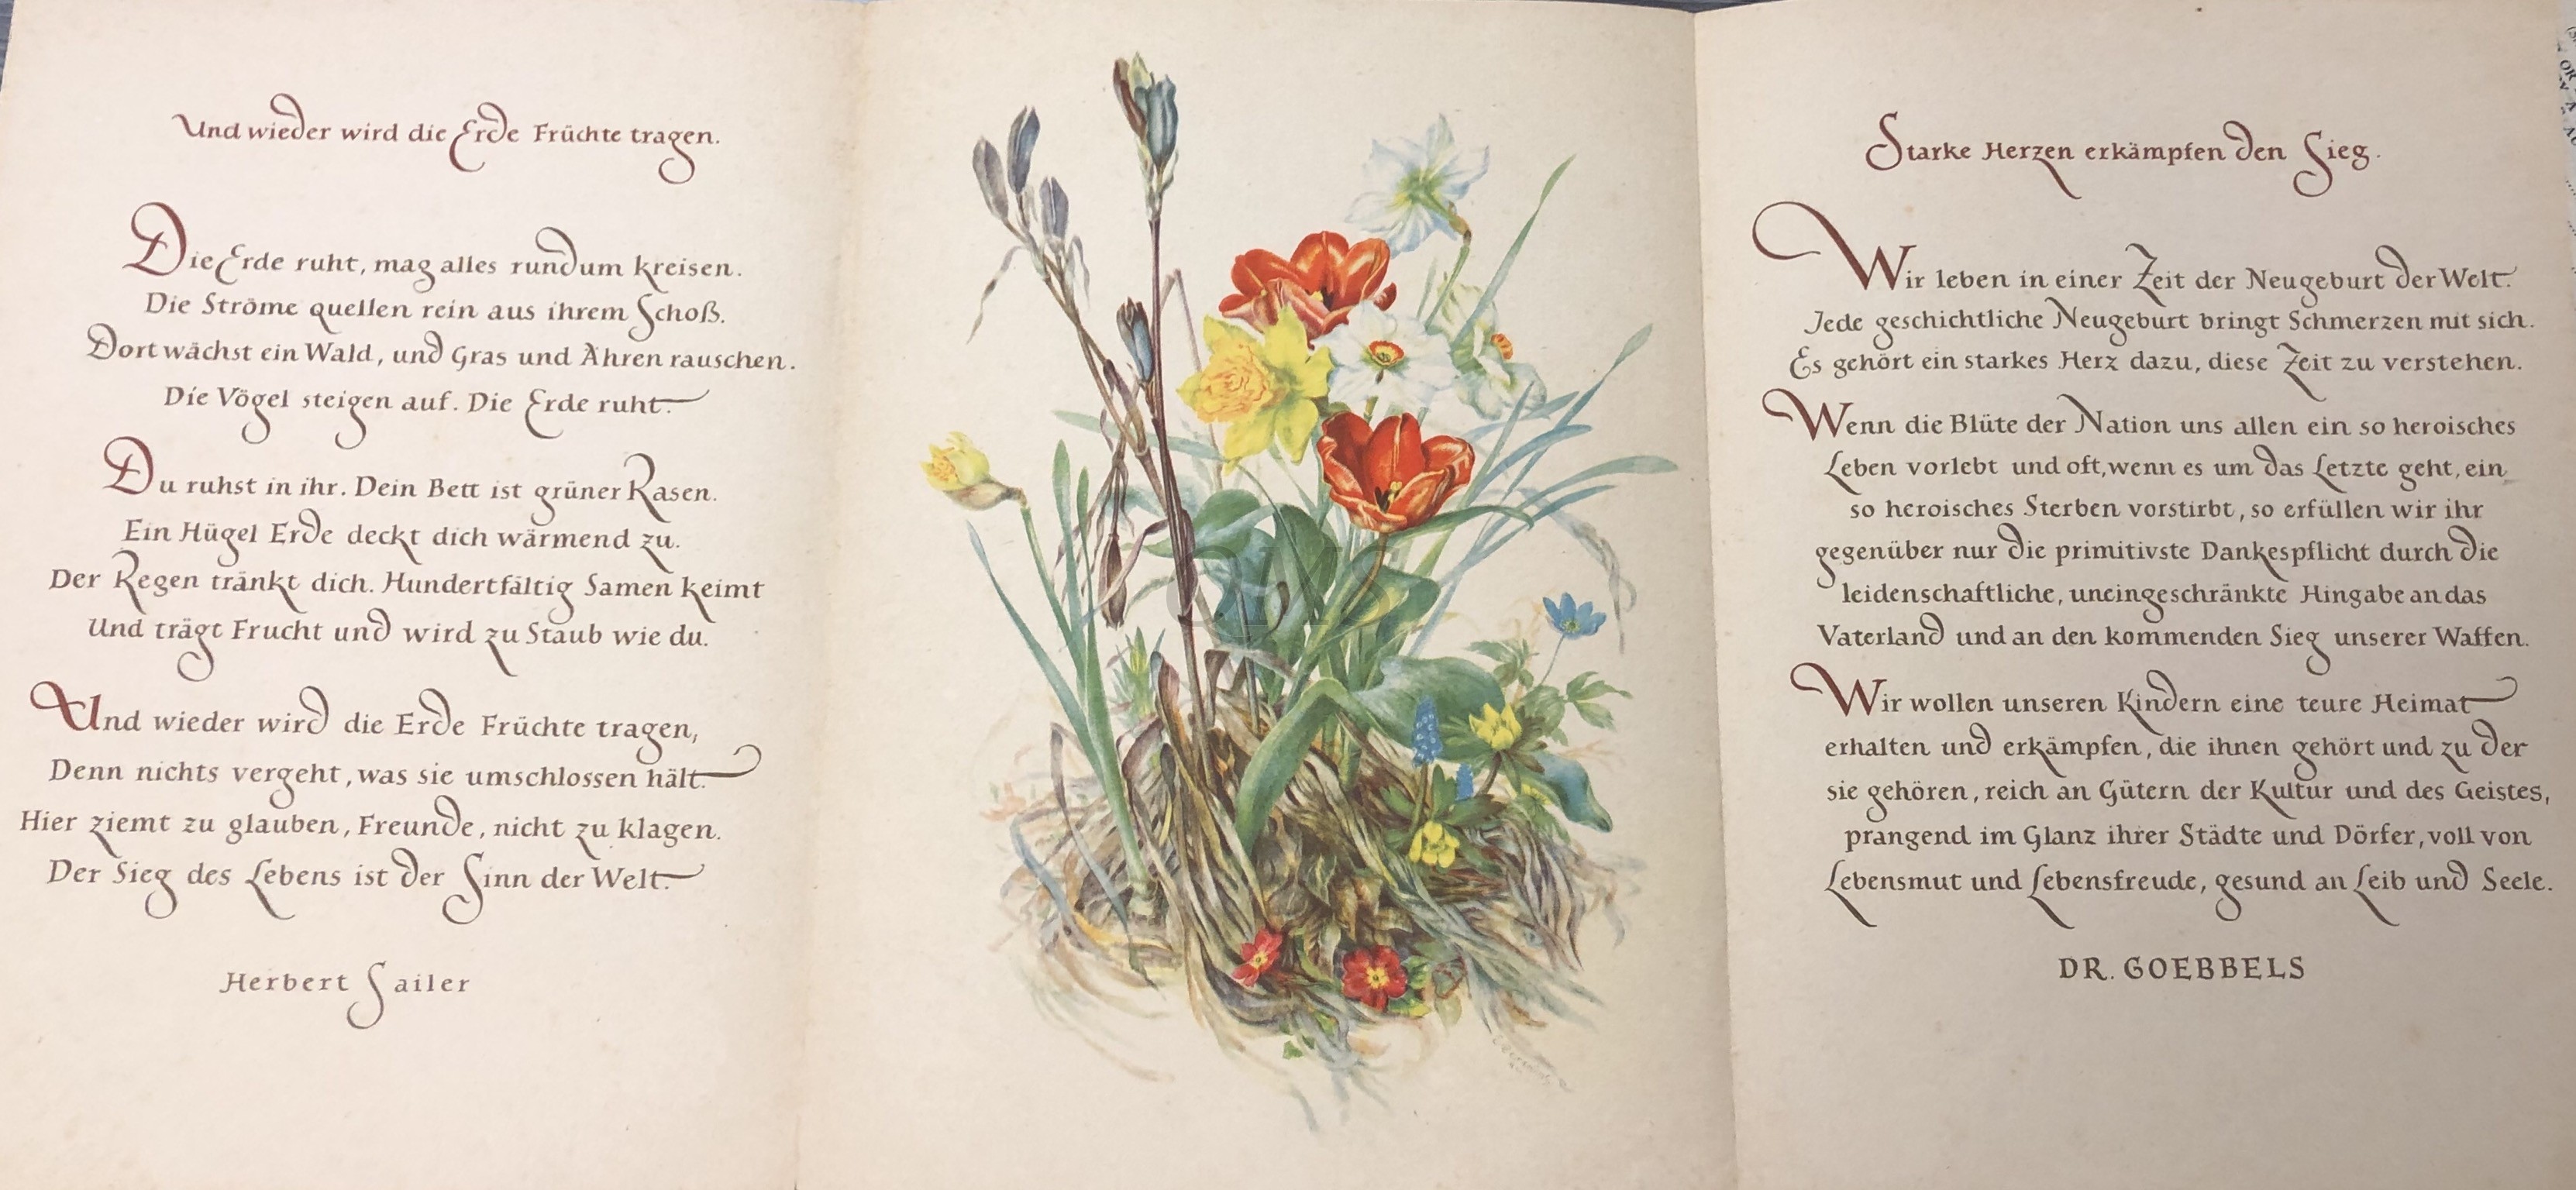 Und wieder wird die Erde Früchte tragen.
Die Erde ruht, mag alles rundum kreisen.
Die Ströme quellen rein aus ihrem Schoß.
Dort wächst ein Wald, und Gras und Ähren rauschen.
Die Vögel steigen auf. Die Erde ruht.
Du ruhst in ihr. Dein Bett ist grüner Rasen.
Ein Hügel Erde deckt dich wärmend zu.
Der Regen tränkt dich. Hundertfältig Samen keimt
Und trägt Frucht und wird zu Staub wie du.
Und wieder wird die Erde Früchte tragen,
Denn nichts vergeht, was sie umschlossen hält.
Hier ziemt zu glauben, Freunde, nicht zu klagen.
Der Sieg des Lebens ist der Sinn der Welt.
Herbert Sailer
OMS
Starke Herzen erkämpfen den Sieg.
Wir leben in einer Zeit der Neugeburt der Welt.
Jede geschichtliche Neugeburt bringt Schmerzen mit sich.
Es gehört ein starkes Herz dazu, diese Zeit zu verstehen.
Wenn die Blüte der Nation uns allen ein so heroisches
Leben vorlebt und oft, wenn es um das Letzte geht, ein
so heroisches Sterben vorstirbt, so erfüllen wir ihr
gegenüber nur die primitivste Dankespflicht durch die
leidenschaftliche, uneingeschränkte Hingabe an das
Vaterland und an den kommenden Sieg unserer Waffen.
Wir wollen unseren Kindern eine teure Heimat
erhalten und erkämpfen, die ihnen gehört und zu der
sie gehören, reich an Gütern der Kultur und des Geistes,
prangend im Glanz ihrer Städte und Dörfer, voll von
Lebensmut und Lebensfreude, gesund an Leib und Seele.
DR. GOEBBELS